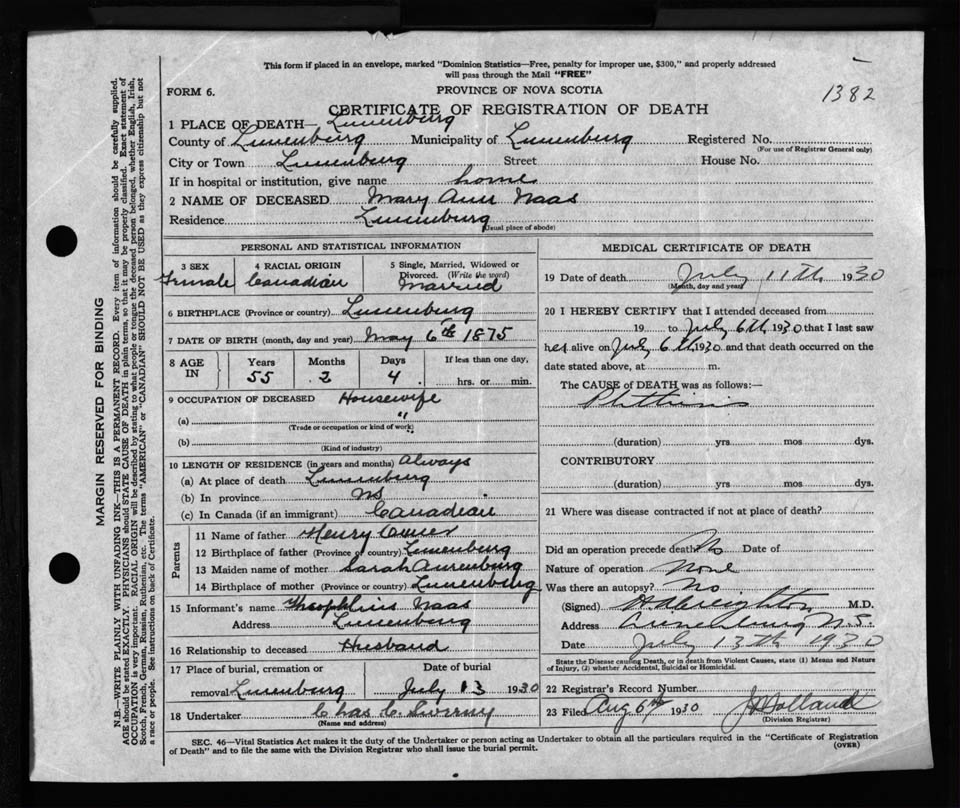 This form if placed in an envelope, marked "Dominion Statistics—Free, penalty for improper use, $300," and properly addressed
will pass through the Mail "FREE"
FORM 6.
PROVINCE OF NOVA SCOTIA
1382
CERTIFICATE OF REGISTRATION OF DEATH
1 PLACE OF DEATH— Lunenburg
County of Lunenburg Municipality of Lunenburg Registered No.
(For use of Registrar General only)
City or Town Lunenburg Street House No.
If in hospital or institution, give name home
2 NAME OF DECEASED Mary Ann Naas
Residence Lunenburg
(Usual place of abode)
PERSONAL AND STATISTICAL INFORMATION
3 SEX Female
4 RACIAL ORIGIN Canadian
5 Single, Married, Widowed or
Divorced. (Write the word)
Married
6 BIRTHPLACE (Province or country) Lunenburg
7 DATE OF BIRTH (month, day and year) May 6th 1875
8 AGE IN
Years Months Days If less than one day,
55 2 4 hrs. or min.
9 OCCUPATION OF DECEASED Housewife
(a) "
(Trade or occupation or kind of work)
(b)
(Kind of industry)
10 LENGTH OF RESIDENCE (in years and months) Always
(a) At place of death Lunenburg
(b) In province NS
(c) In Canada (if an immigrant) Canadian
Parents
11 Name of father Henry
12 Birthplace of father (Province or country) Lunenburg
13 Maiden name of mother Sarah
14 Birthplace of mother (Province or country) Lunenburg
15 Informant's name Theophilus Naas
Address Lunenburg
16 Relationship to deceased Husband
17 Place of burial, cremation or Date of burial
removal Lunenburg July 13 1930
18 Undertaker Chas C.
(Name and address)
MEDICAL CERTIFICATE OF DEATH
19 Date of death July 11th 1930
(Month, day and year)
20 I HEREBY CERTIFY that I attended deceased from
19 to July 6th 1930 that I last saw
her alive on July 6th 1930 and that death occurred on the
date stated above, at m.
The CAUSE of DEATH was as follows:—
Phthisis
(duration) yrs mos dys.
CONTRIBUTORY
(duration) yrs mos dys.
21 Where was disease contracted if not at place of death?
Did an operation precede death No Date of
Nature of operation None
Was there an autopsy? No
(Signed) Creighton M.D.
Address Lunenburg N.S.
Date July 13th 1930
State the Disease causing Death, or in death from Violent Causes, state (1) Means and Nature
of Injury, (2) whether Accidental, Suicidal or Homicidal.
22 Registrar's Record Number
23 Filed Aug 6th 1930 Holland
(Division Registrar)
SEC. 46—Vital Statistics Act makes it the duty of the Undertaker or person acting as Undertaker to obtain all the particulars required in the "Certificate of Registration
of Death" and to file the same with the Division Registrar who shall issue the burial permit.
(OVER)
MARGIN RESERVED FOR BINDING
N.B.—WRITE PLAINLY WITH UNFADING INK—THIS IS A PERMANENT RECORD. Every item of information should be carefully supplied.
AGE should be stated EXACTLY. PHYSICIANS should STATE CAUSE OF DEATH in plain terms, so that it may be properly classified. Exact statement of
OCCUPATION is very important. RACIAL ORIGIN will be described by stating to what people or tongue the deceased person belonged, whether English, Irish,
Scotch, French, German, Russian, Ruthenian, etc. The terms "AMERICAN" or "CANADIAN" SHOULD NOT BE USED as they express citizenship but not
a race or people. See instructions on back of Certificate.